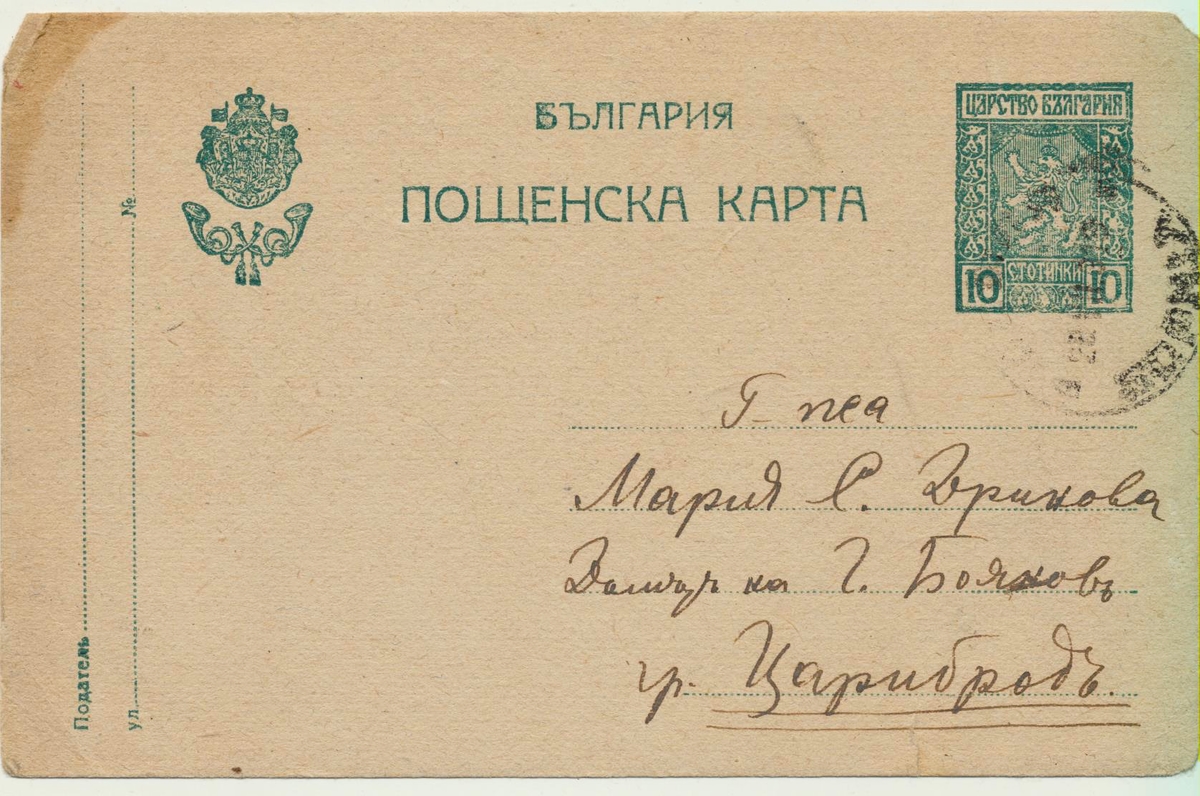 БЪЛГАРИЯ
ПОЩЕНСКА КАРТА
ЦАРСТВО БЪЛГАРИЯ
10 СТОТИНКИ 10
Г-жа
Мария С. Дринова
Домътъ на Г. Бояновъ
гр. Царибродъ.
Податель
ул. №